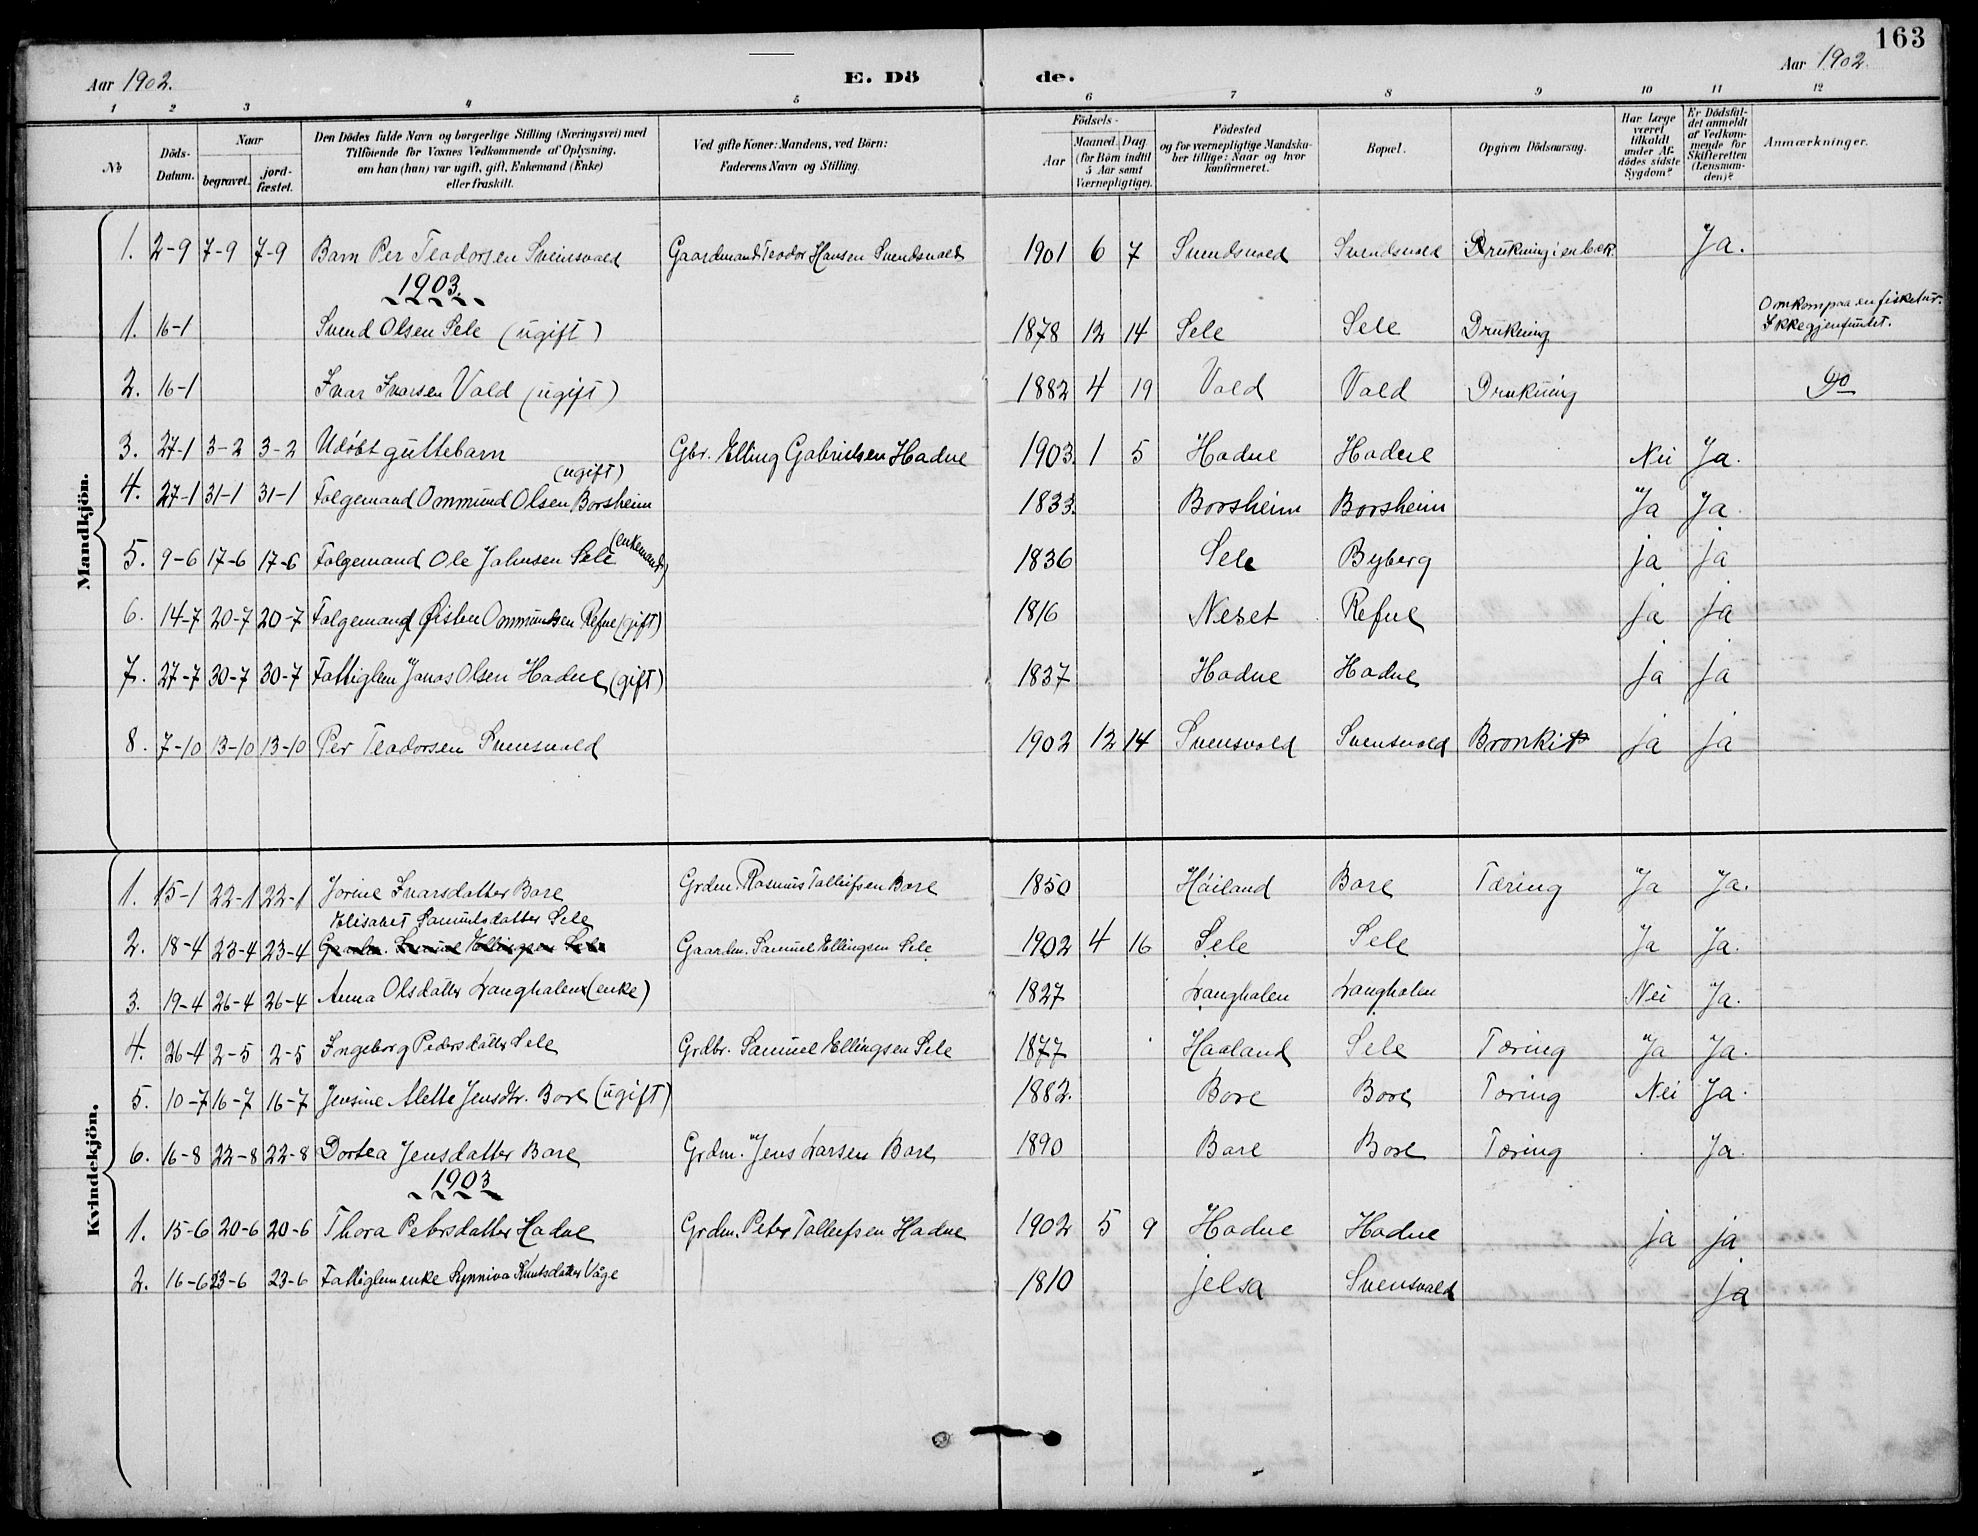 163
Aar 1902.
E. Dö
de.
Aar 1902.
1 2 3 4 5 6 7 8 9 10 11 12
№
Döds-Datum.
Naar
begravet.
jord-fæstet.
Den Dödes fulde Navn og borgerlige Stilling (Næringsvei) med
Tilföiende for Voxnes Vedkommende af Oplysning,
om han (hun) var ugift, gift, Enkemand (Enke)
eller fraskilt.
Ved gifte Koner: Mandens, ved Börn:
Faderens Navn og Stilling.
Födsels-
Aar
Maaned Dag
(for Börn indtil
5 Aar samt
Værnepligtige).
Födested
og for værnepligtige Mandska-
ber tillige: Naar og hvor
konfirmeret.
Bopæl.
Opgiven Dödsaarsag.
Har Læge
været
tilkaldt
under Af-
dödes sidste
Sygdom?
Er Dödsfal-
det anmeldt
af Vedkom-
mende for
Skifteretten
(Lensman-
den)?
Anmærkninger.
Mandkjön.
1. 2-9 7-9 7-9 Barn Per Teodorsen Svensvold Gaardmand Teodor Hansen Svendsvold 1901 6 7 Svendsvold Svendsvold Drukning i en bæk. Ja.
1903.
1. 16-1 Svend Olsen Sele (ugift) 1878 12 14 Sele Sele Drukning Omkom paa en fisketur.
Ikke gjenfundet.
2. 16-1 Ivar Ivarsen Vold (ugift) 1882 4 19 Vold Vold Drukning Do
3. 27-1 3-2 3-2 Udöbt guttebarn Gbr. Elling Gabrielsen Hodne 1903. 1 5 Hodne Hodne Nei Ja.
(ugift)
4. 27-1 31-1 31-1 Folgemand Ommund Olsen Borsheim 1833. Borsheim Borsheim Ja Ja.
5. 9-6 17-6 17-6 Folgemand Ole Johnsen Sele (enkemand) 1836 Sele Byberg ja ja
6. 14-7 20-7 20-7 Folgemand Øisten Ommundsen Refne (gift) 1816 Neset Refne ja ja
7. 27-7 30-7 30-7 Fattiglem Jonas Olsen Hodne (gift) 1837 Hodne Hodne ja ja
8. 7-10 13-10 13-10 Per Teodorsen Svensvold 1902 12 14 Svensvold Svensvold Bronkit ja ja
Kvindekjön.
1. 15-1 22-1 22-1 Jorine Ivarsdatter Bore Grdm. Rasmus Tolleifsen Bore 1850 Höiland Bore Tæring Ja Ja.
Elisabet Samuelsdatter Sele
2. 18-4 23-4 23-4 Gaardm. Samuel Ellingsen Sele Gaardm. Samuel Ellingsen Sele 1902 4 16 Sele Sele Ja Ja.
3. 19-4 26-4 26-4 Anna Olsdatter Langholen (enke) 1827 Langholen Langholen Nei Ja.
4. 26-4 2-5 2-5 Ingeborg Pedersdatter Sele Grdbr. Samuel Ellingsen Sele 1877 Haaland Sele Tæring Ja Ja.
5. 10-7 16-7 16-7 Jensine Alette Jensdtr. Bore (ugift) 1882. Bore Bore Tæring Nei Ja.
6. 16-8 22-8 22-8 Dortea Jensdatter Bore Grdm. Jens Larsen Bore 1890 Bore Bore Tæring Ja.
1903
1. 15-6 20-6 20-6 Thora Petersdatter Hodne Grdm. Peter Tolleifsen Hodne 1902 5 9 Hodne Hodne ja ja
2. 16-6 23-6 23-6 Fattiglem enke Synniva Knutsdatter Våge 1810 jelsa Svensvold ja